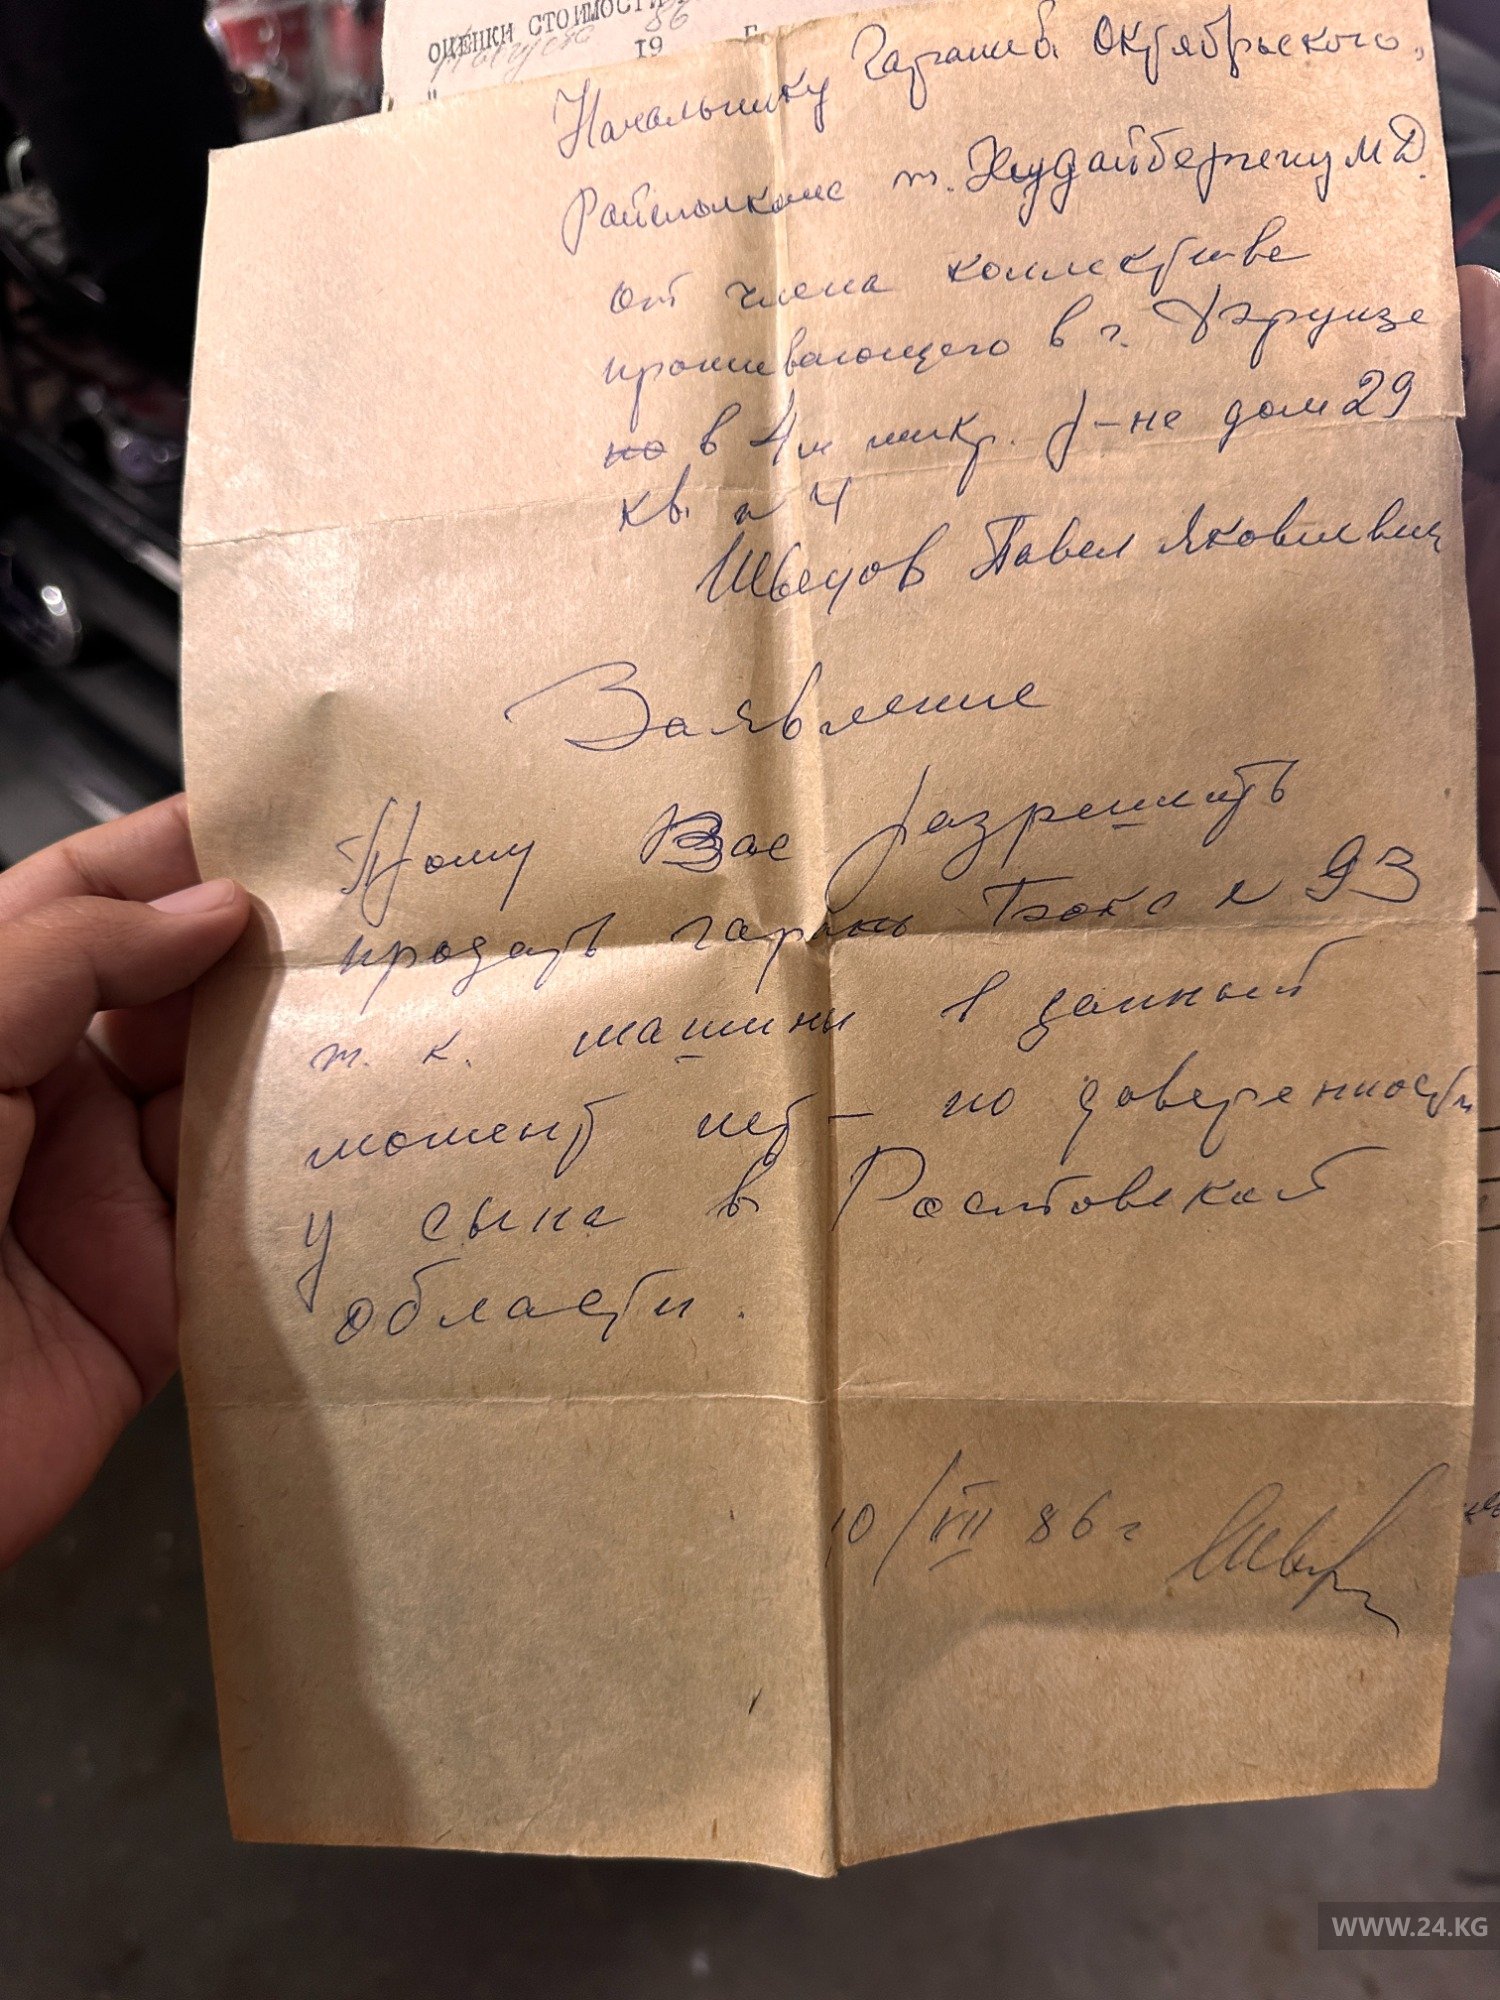 ОЦЕНКИ СТОИМОСТИ
августа 86
19 г
Начальнику Гаражей Октябрьского
Райисполкома т. Худайбергену М Д.
от члена коллектива
проживающего в г. Фрунзе
в 4м микр. р-не дом 29
кв. № 4
Швецов Павел Яковлевич
Заявление
Прошу Вас разрешить
продать гараж Бокс № 93
т. к. машины в данный
момент нет – по доверенности
у сына в Ростовской
области.
10/VII 86 г
WWW.24.KG